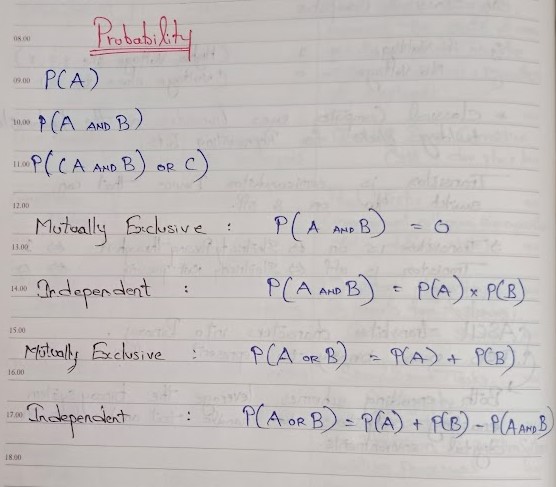 Probability
08.00
09.00 P(A)
10.00 P(A AND B)
11.00 P((A AND B) OR C)
12.00
Mutually Exclusive : P(A AND B) = 0
13.00
14.00 Independent : P(A AND B) = P(A) x P(B)
15.00
Mutually Exclusive : P(A OR B) = P(A) + P(B)
16.00
17.00 Independent : P(A OR B) = P(A) + P(B) - P(A AND B)
18.00